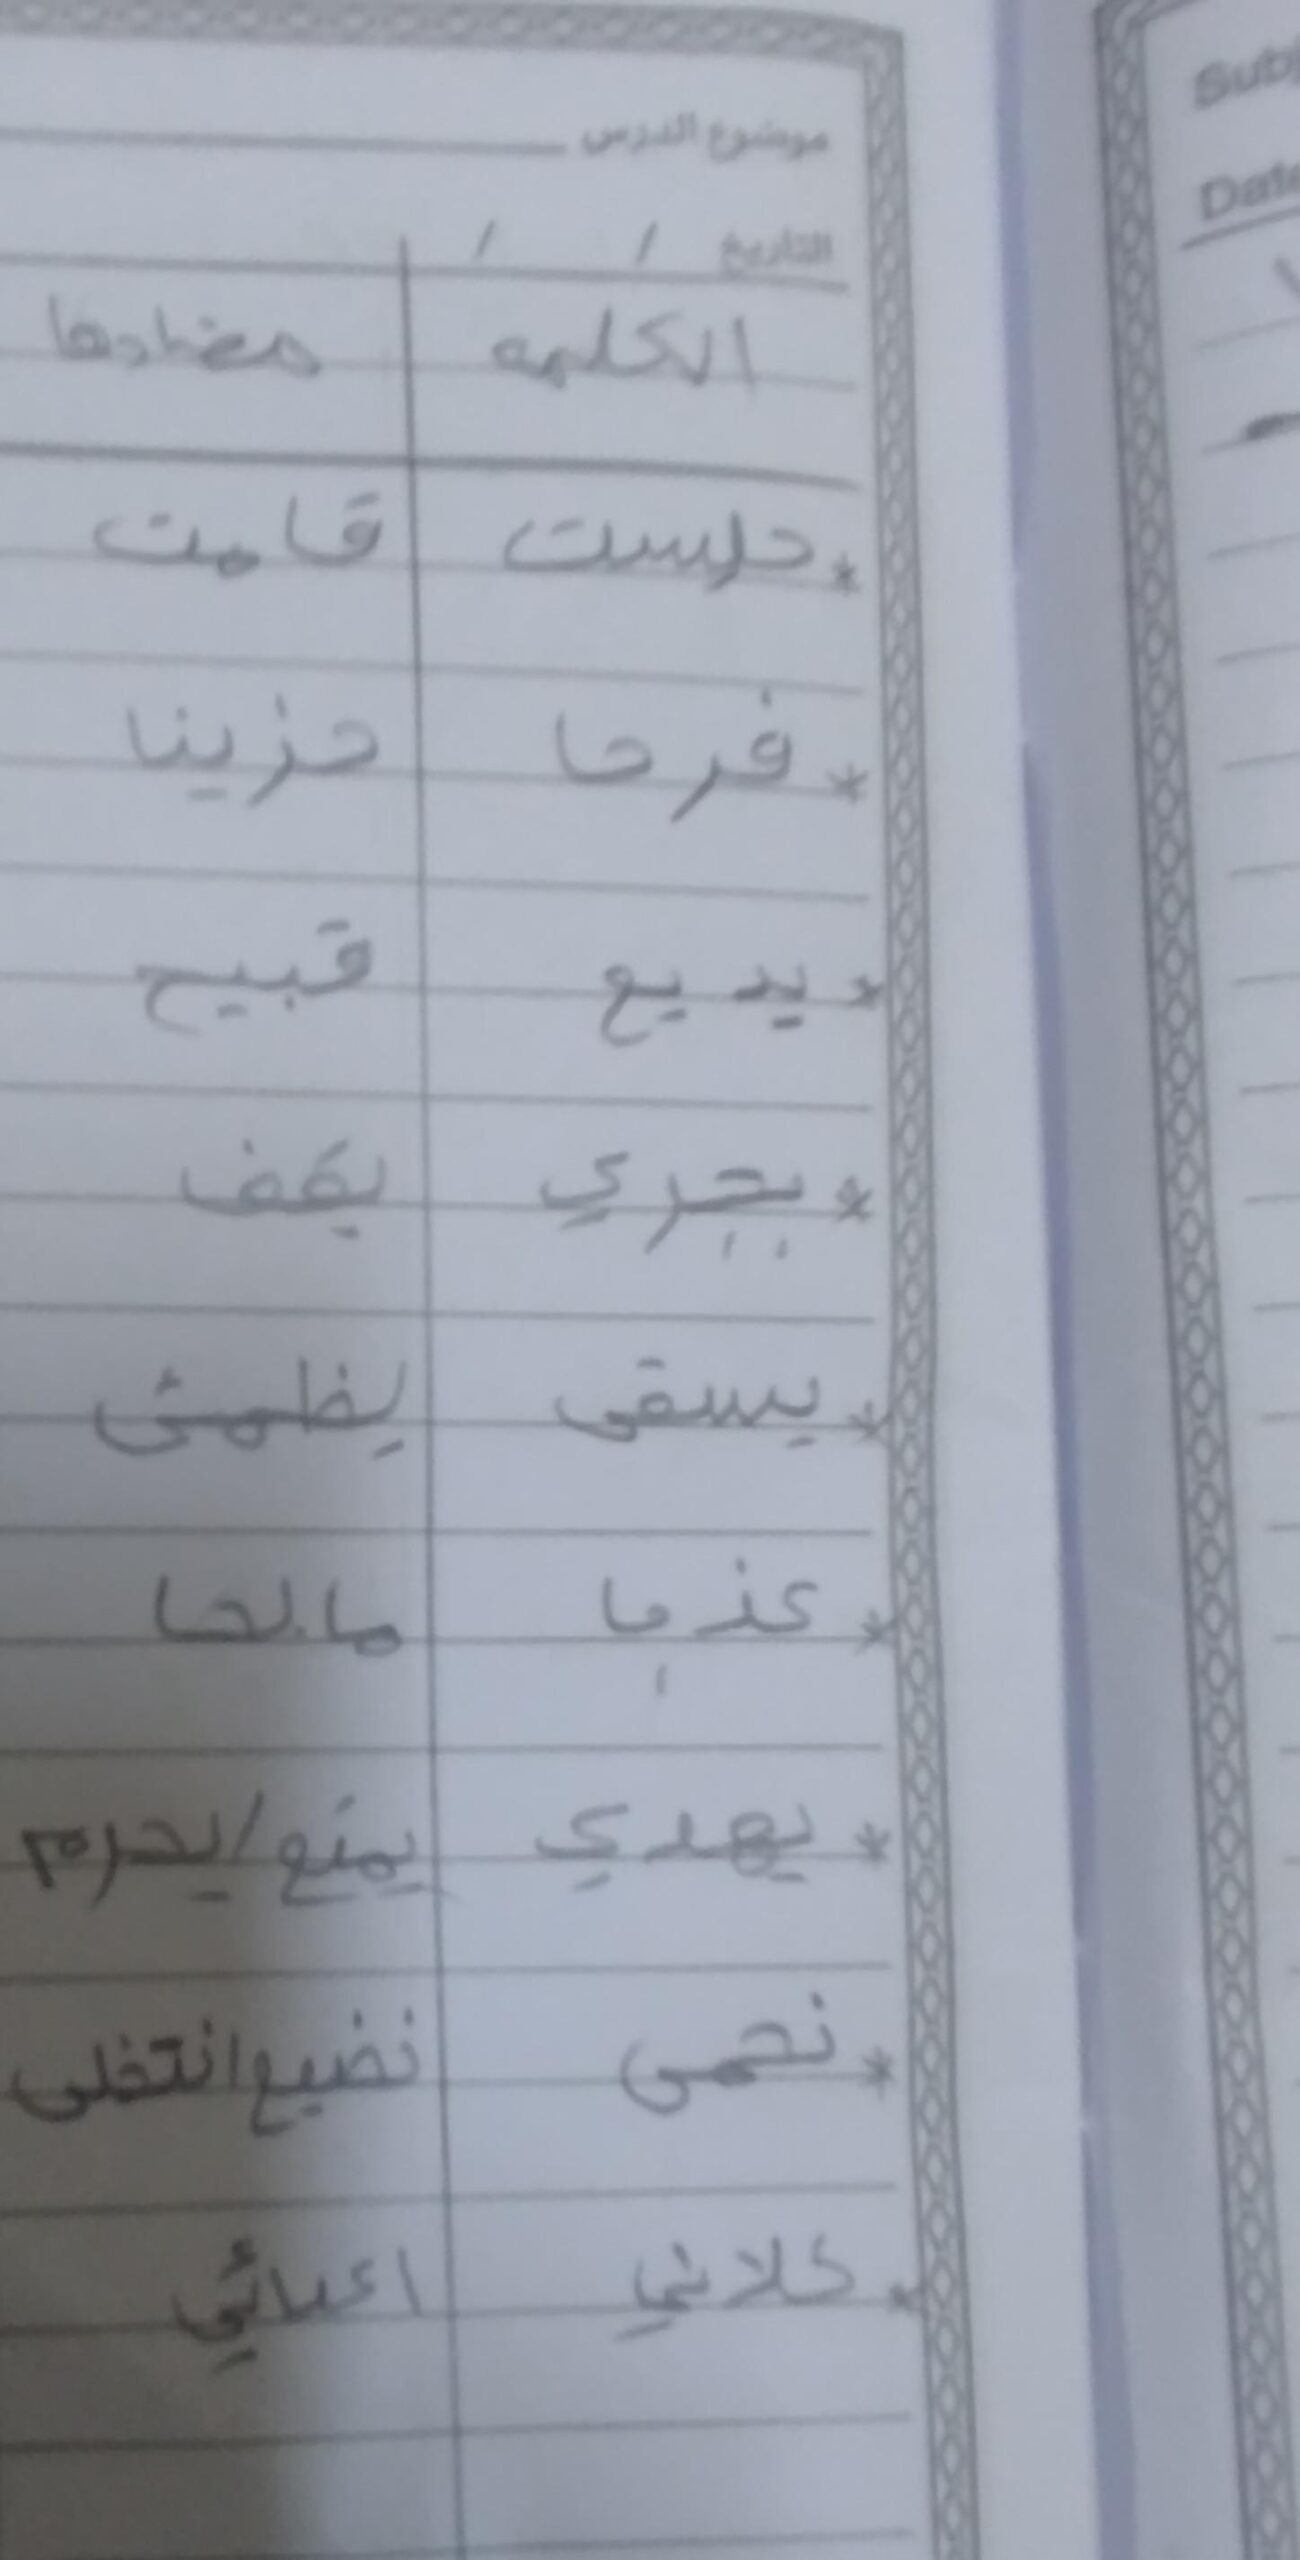 موضوع الدرس
التاريخ / /
الكلمه مضادها
* جلست قامت
* فرحا حزينا
* بديع قبيح
* يجري يقف
* يسقى يظمئ
* عذبا مالحا
* يهدي يمنع/يحرم
* نحمى نضيع/نتخلى
* خلاني اعدائي
Subj
Date